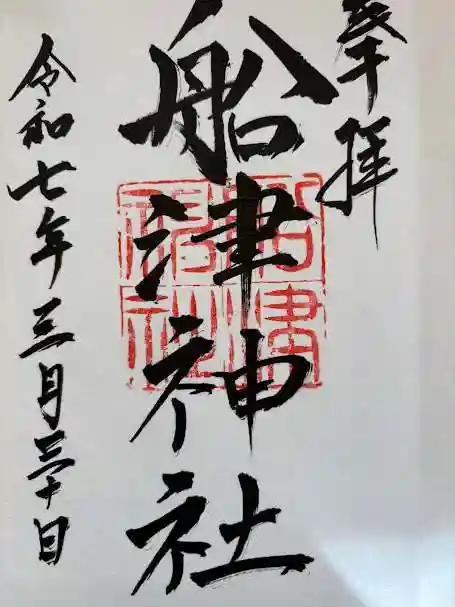 奉拝
船津神社
船津神社
令和七年三月三十日